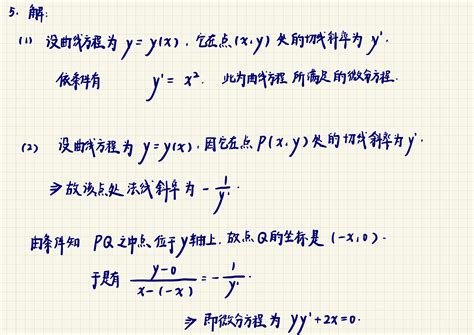 5. 解:
(1) 设曲线方程为 y = y(x), 它在点 (x,y) 处的切线斜率为 y'.
依条件有 y' = x². 此为曲线方程所满足的微分方程.
(2) 设曲线方程为 y = y(x), 因它在点 P(x,y) 处的切线斜率为 y'.
⇒ 故该点处法线斜率为 -1/y'.
由条件知 PQ 之中点位于 y 轴上, 故点 Q 的坐标是 (-x,0).
于是有 (y-0)/(x-(-x)) = -1/y'
⇒ 即微分方程为 yy'+2x=0.